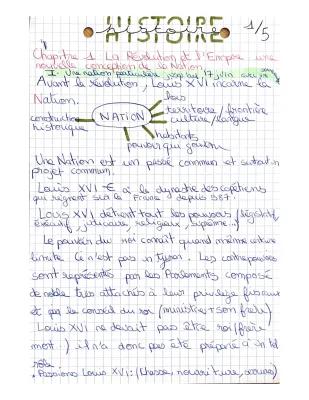 HISTOIRE
histoire
1/5
Chapitre 1 La Révolution et l'Empire une
nouvelle conception de la Nation.
I. Une nation particulière jusqu'au 17 juin
Avant la révolution, Louis XVI incarne la
Nation.
lois
territoire / frontière
culture / langue
construction
historique
NATION
habitants
pouvoir qui gouverne
Une Nation est un passé commun et surtout un
projet commun.
Louis XVI € à la dynastie des capétiens
qui règnent sur la France depuis 987.
Louis XVI détient tout les pouvoirs (législatif,
exécutif, judiciaire, religieux, suprême...)
Le pouvoir du roi connaît quand même
limite. Ce n'est pas 1 tyran. Les contre pouvoirs
sont représentés par les Parlements composé
de noble très attachés à leur privilège
et par le conseil du roi (ministres + son frère)
Louis XVI ne devait pas être roi (frère
mort) il n'a donc pas été préparé à 1 tel
rôle.
• Passions Louis XVI : (chasse, nourriture,